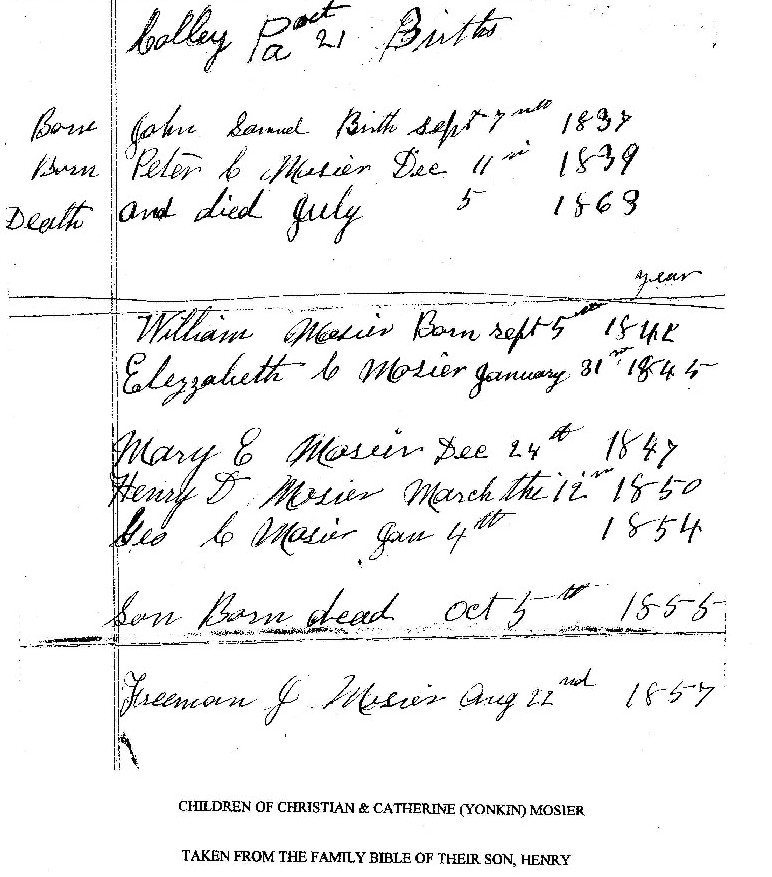 Colley Pa oct 21 Births
Born John Samuel Birth sept 7 1837
Born Peter C Mosier Dec 11 1839
Death and died July 5 1863
year
William Mosier Born sept 5 184
Elezzabeth C Mosier January 31 1845
Mary E Mosier Dec 24th 1847
Henry D Mosier March the 12 1850
Geo C Mosier Jan 4th 1854
Son Born dead Oct 5th 1855
Freeman J Mosier Aug 22nd 1857
CHILDREN OF CHRISTIAN & CATHERINE (YONKIN) MOSIER
TAKEN FROM THE FAMILY BIBLE OF THEIR SON, HENRY